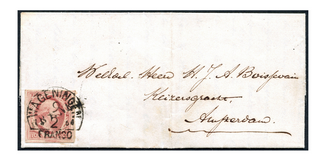 WAGENINGEN
FRANCO
Weledel. Heer H. J. A. Boissevain
Keizersgracht.
Amsterdam.